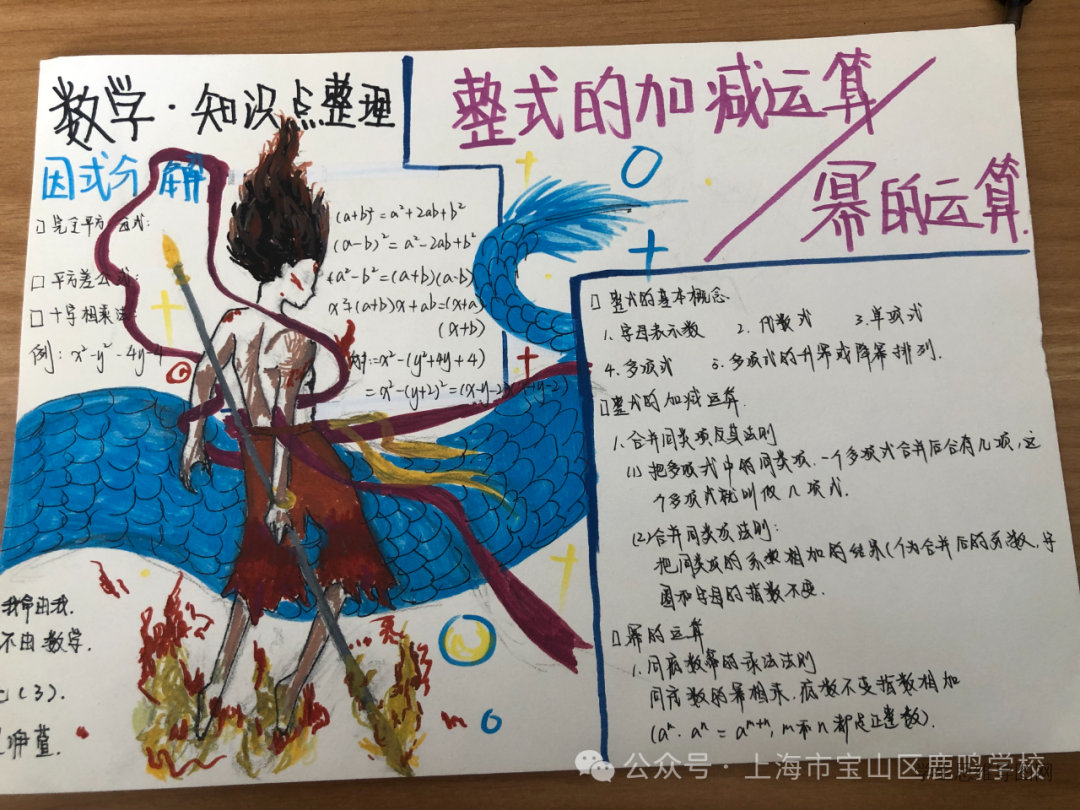 数学·知识点整理
因式分解
□ 完全平方公式: (a+b)²=a²+2ab+b²
(a-b)²=a²-2ab+b²
□ 平方差公式: a²-b²=(a+b)(a-b)
□ 十字相乘法: x²+(a+b)x+ab=(x+a)
(x+b)
例: x²-y²-4y-4
=x²-(y²+4y+4)
=x²-(y+2)²=(x-y-2)
我命由我
不由数学.
(3).
整式的加减运算/
幂的运算.
□ 整式的基本概念
1.字母表示数 2.代数式 3.单项式
4.多项式 5.多项式的升幂或降幂排列.
□整式的加减运算.
1.合并同类项及其法则
(1)把多项式中的同类项.一个多项式合并后含有几项,这
个多项式就叫做几项式.
(2)合并同类项法则:
把同类项的系数相加的结果作为合并后的系数,字
母和字母的指数不变.
□幂的运算
1.同底数幂的乘法法则
同底数的幂相乘.底数不变指数相加
(aᵐ·aⁿ=aᵐ⁺ⁿ,m和n都是正整数).
公众号·上海市宝山区鹿鸣学校